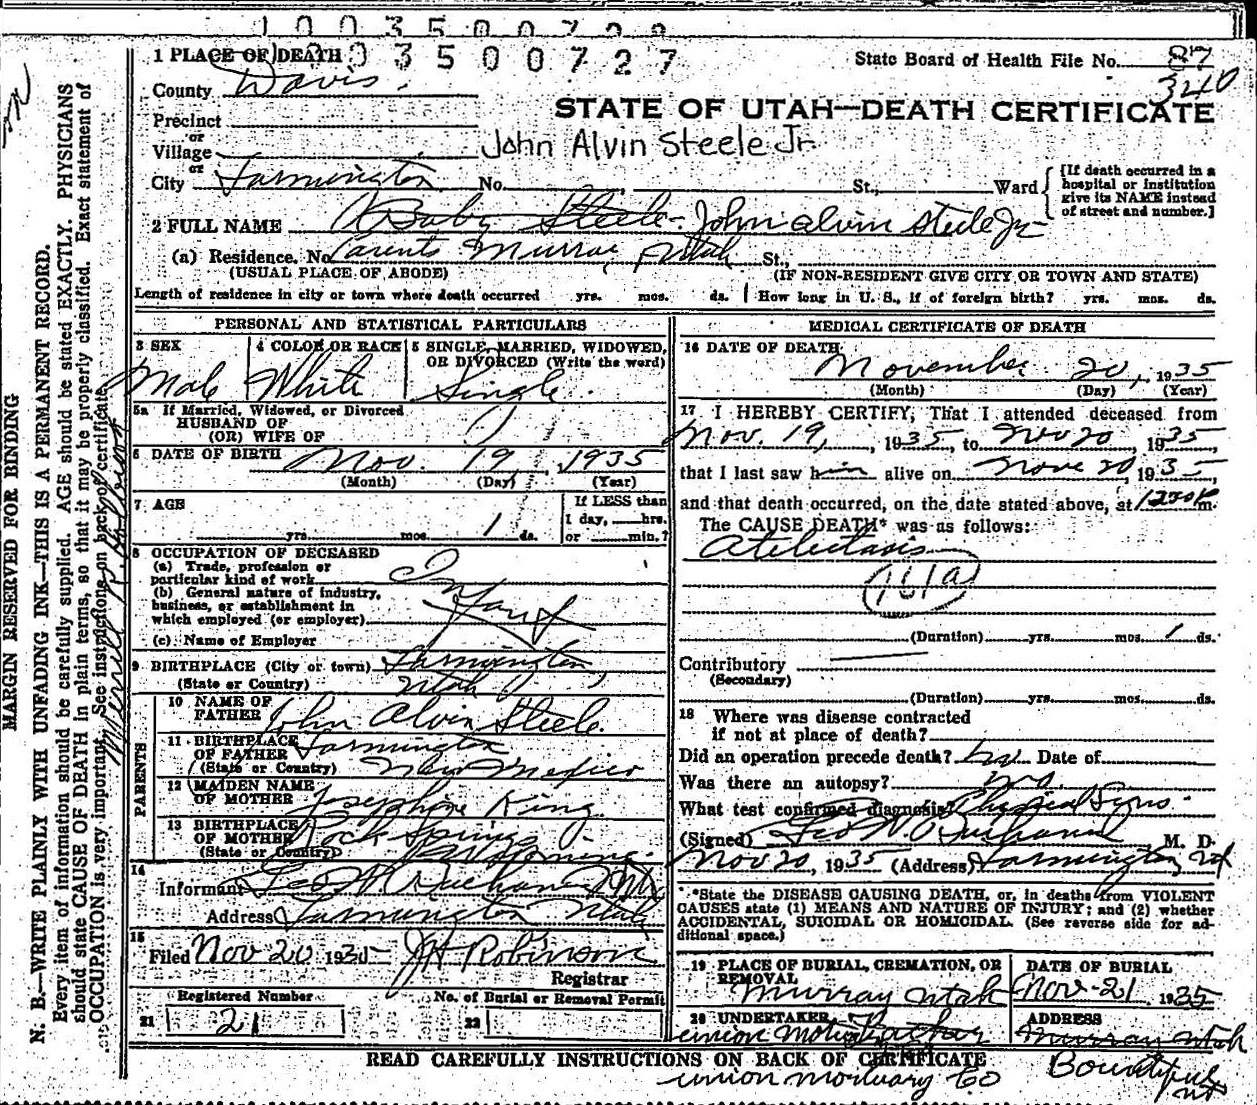 1 0 0 3 5 0 0 7 2 9
1 PLACE OF DEATH 0 0 3 5 0 0 7 2 7
State Board of Health File No. 87
340
County Davis
STATE OF UTAH—DEATH CERTIFICATE
Precinct
or
Village
John Alvin Steele Jr.
or
City Farmington No. St., Ward
[If death occurred in a
hospital or institution
give its NAME instead
of street and number.]
2 FULL NAME Baby Steele - John Alvin Steele Jr
(a) Residence. No. Parents Murray, Utah St.,
(USUAL PLACE OF ABODE) (IF NON-RESIDENT GIVE CITY OR TOWN AND STATE)
Length of residence in city or town where death occurred yrs. mos. ds. How long in U. S., if of foreign birth? yrs. mos. ds.
PERSONAL AND STATISTICAL PARTICULARS
3 SEX 4 COLOR OR RACE 5 SINGLE, MARRIED, WIDOWED,
OR DIVORCED (Write the word)
Male White Single
5a If Married, Widowed, or Divorced
HUSBAND OF
(OR) WIFE OF
6 DATE OF BIRTH Nov. 19, 1935
(Month) (Day) (Year)
7 AGE If LESS than
1 day, hrs.
yrs. mos. 1 ds. or min.?
8 OCCUPATION OF DECEASED
(a) Trade, profession or
particular kind of work
(b) General nature of industry,
business, or establishment in
which employed (or employer)
Infant
(c) Name of Employer
9 BIRTHPLACE (City or town) Farmington
(State or Country) Utah
PARENTS
10 NAME OF
FATHER John Alvin Steele
11 BIRTHPLACE
OF FATHER Farmington
(State or Country) New Mexico
12 MAIDEN NAME
OF MOTHER Josephine King
13 BIRTHPLACE
OF MOTHER Rock Springs
(State or Country) Wyoming
14
Informant
Address Farmington Utah
15
Filed Nov 20 1935 J H Robinson
Registrar
Registered Number No. of Burial or Removal Permit
21 21 22
MEDICAL CERTIFICATE OF DEATH
16 DATE OF DEATH
November 20, 1935
(Month) (Day) (Year)
17 I HEREBY CERTIFY, That I attended deceased from
Nov. 19, 1935, to Nov 20 1935,
that I last saw him alive on Nov 20, 1935,
and that death occurred, on the date stated above, at m.
The CAUSE DEATH* was as follows:
Atelectasis
161a
(Duration) yrs. mos. 1 ds.
Contributory
(Secondary)
(Duration) yrs. mos. ds.
18 Where was disease contracted
if not at place of death?
Did an operation precede death? no Date of
Was there an autopsy? no
What test confirmed diagnosis? Physical Signs
(Signed) M. D.
Nov 20, 1935 (Address) Farmington Ut
*State the DISEASE CAUSING DEATH, or, in deaths from VIOLENT
CAUSES state (1) MEANS AND NATURE OF INJURY; and (2) whether
ACCIDENTAL, SUICIDAL OR HOMICIDAL. (See reverse side for ad-
ditional space.)
19 PLACE OF BURIAL, CREMATION, OR
REMOVAL
Murray Utah
DATE OF BURIAL
Nov-21 1935
20 UNDERTAKER
ADDRESS
Murray Utah
READ CAREFULLY INSTRUCTIONS ON BACK OF CERTIFICATE
Union Mortuary Co Bountiful
Ut
MARGIN RESERVED FOR BINDING
N. B.—WRITE PLAINLY WITH UNFADING INK—THIS IS A PERMANENT RECORD.
Every item of information should be carefully supplied. AGE should be stated EXACTLY. PHYSICIANS
should state CAUSE OF DEATH in plain terms, so that it may be properly classified. Exact statement of
OCCUPATION is very important. See instructions on back of certificate.